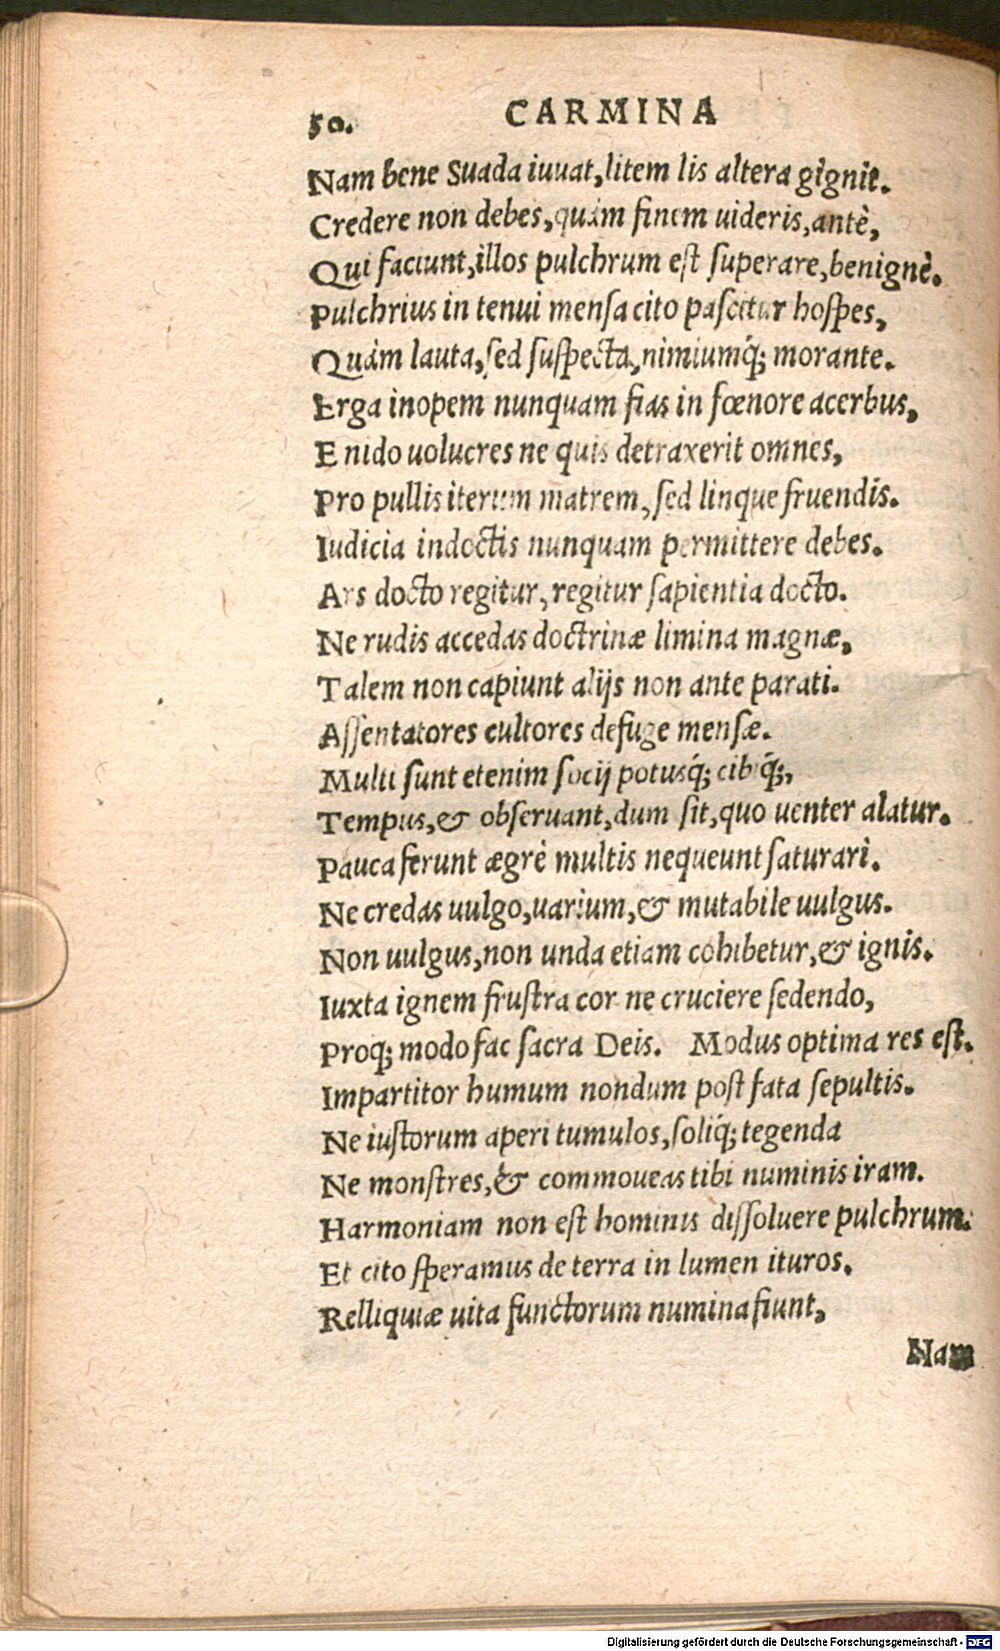 50. CARMINA
Nam bene Suada iuuat, litem lis altera gignit.
Credere non debes, quám finem uideris, antè,
Qui faciunt, illos pulchrum est superare, benignè.
Pulchrius in tenui mensa cito pascitur hospes,
Quám lauta, sed suspecta, nimiumq́; morante.
Erga inopem nunquam fias in fœnore acerbus,
E nido uolucres ne quis detraxerit omnes,
Pro pullis iterum matrem, sed linque fruendis.
Iudicia indoctis nunquam permittere debes.
Ars docto regitur, regitur sapientia docto.
Ne rudis accedas doctrinæ limina magnæ,
Talem non capiunt alijs non ante parati.
Assentatores cultores defuge mensæ.
Multi sunt etenim socij potusq́; cibiq́;,
Tempus, & obseruant, dum sit, quo uenter alatur.
Pauca ferunt ægrè multis nequeunt saturari.
Ne credas uulgo, uarium, & mutabile uulgus.
Non uulgus, non unda etiam cohibetur, & ignis.
Iuxta ignem frustra cor ne cruciere sedendo,
Proq; modo fac sacra Deis. Modus optima res est.
Impartitor humum nondum post fata sepultis.
Ne iustorum aperi tumulos, soliq́; tegenda
Ne monstres, & commoueas tibi numinis iram.
Harmoniam non est hominis dissoluere pulchrum.
Et cito speramus de terra in lumen ituros.
Relliquiæ uita functorum numina fiunt,
Nam
Digitalisierung gefördert durch die Deutsche Forschungsgemeinschaft - DFG